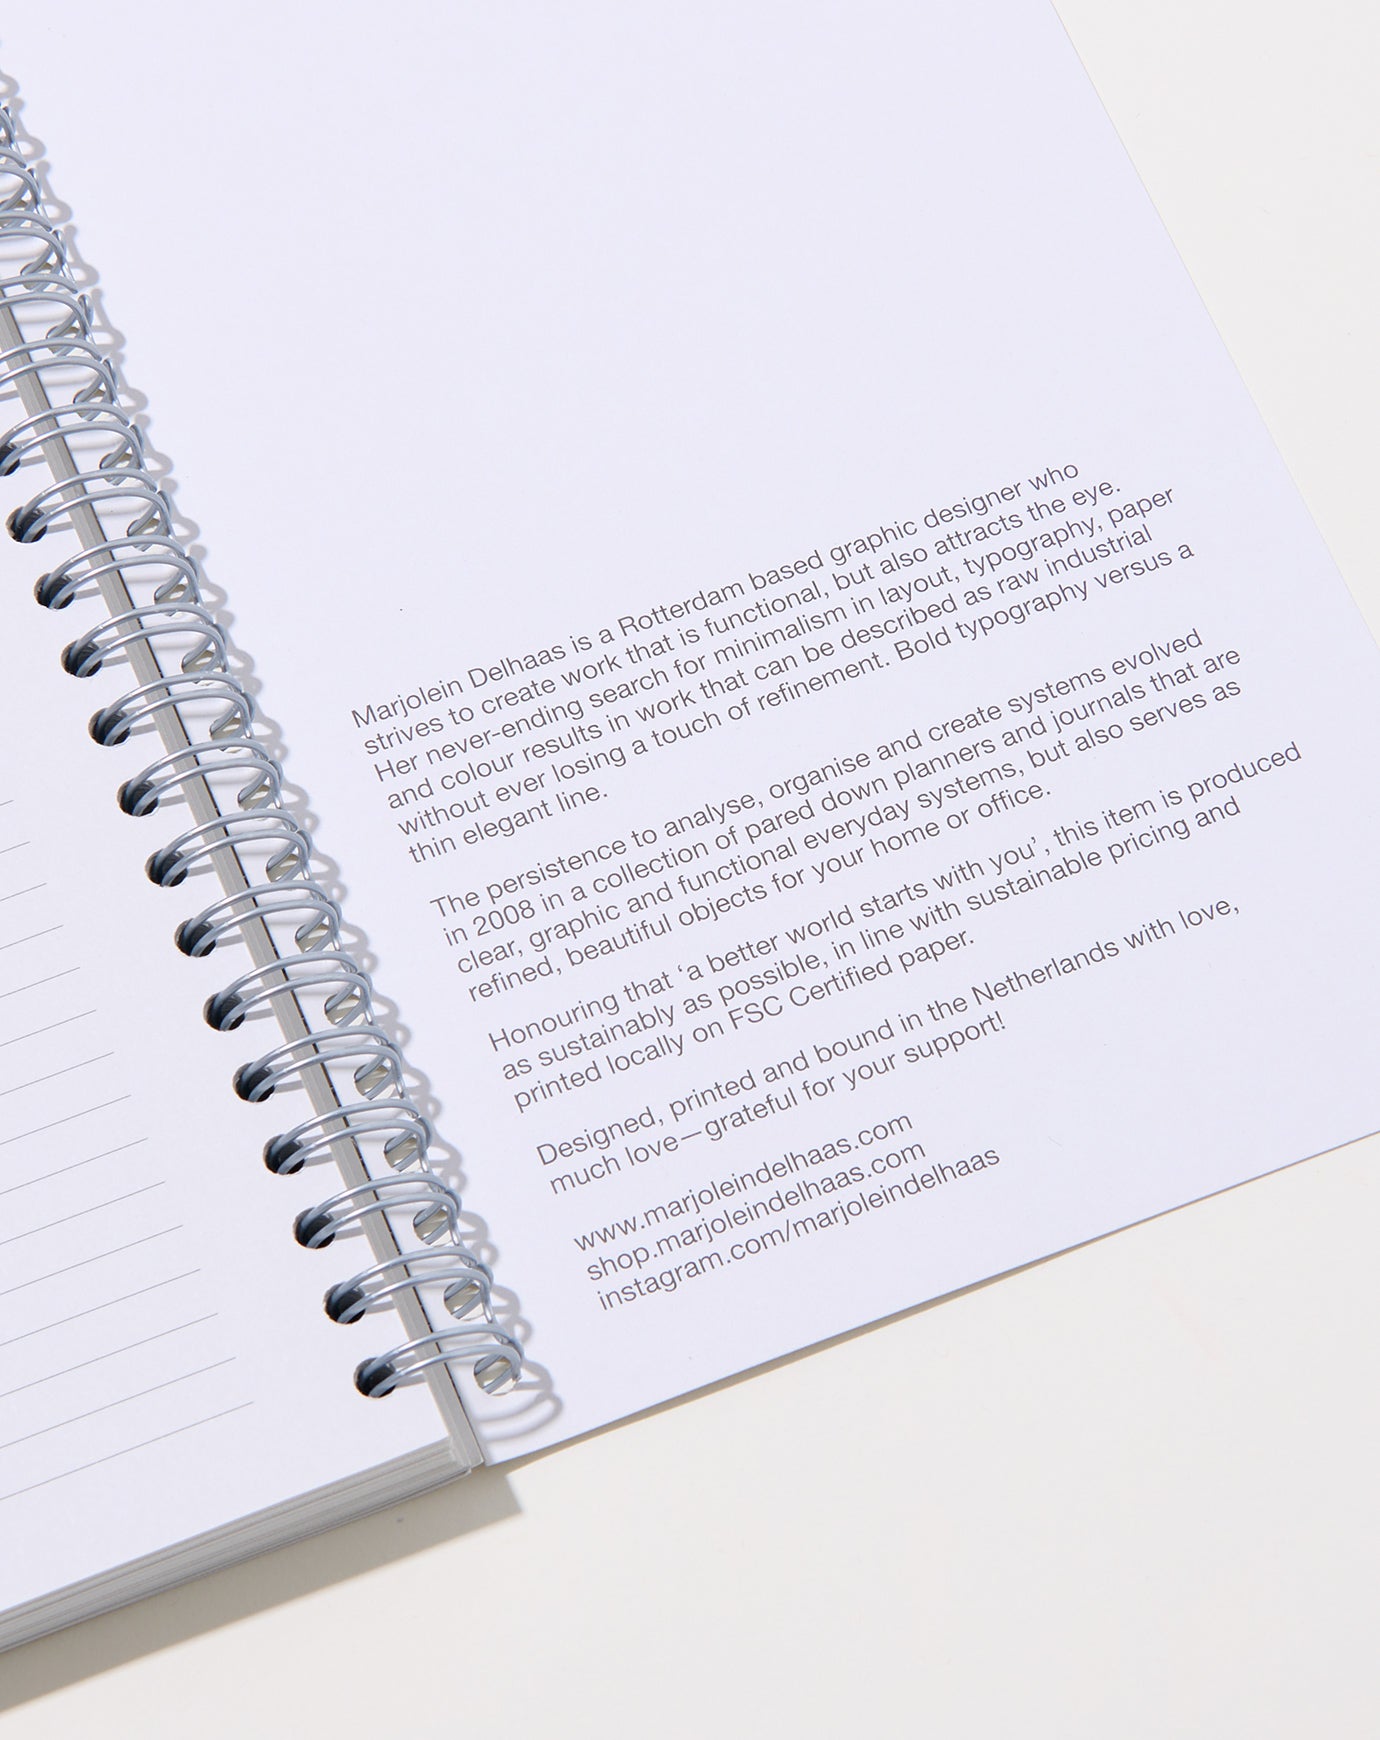 Marjolein Delhaas is a Rotterdam based graphic designer who
strives to create work that is functional, but also attracts the eye.
Her never-ending search for minimalism in layout, typography, paper
and colour results in work that can be described as raw industrial
without ever losing a touch of refinement. Bold typography versus a
thin elegant line.
The persistence to analyse, organise and create systems evolved
in 2008 in a collection of pared down planners and journals that are
clear, graphic and functional everyday systems, but also serves as
refined, beautiful objects for your home or office.
Honouring that ‘a better world starts with you’, this item is produced
as sustainably as possible, in line with sustainable pricing and
printed locally on FSC Certified paper.
Designed, printed and bound in the Netherlands with love,
much love—grateful for your support!
www.marjoleindelhaas.com
shop.marjoleindelhaas.com
instagram.com/marjoleindelhaas